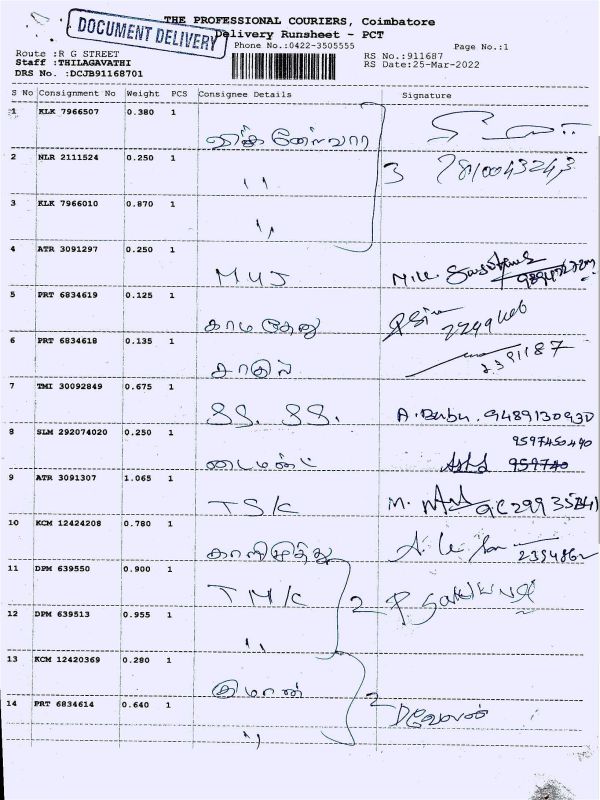 THE PROFESSIONAL COURIERS, Coimbatore
DOCUMENT DELIVERY
Delivery Runsheet - PCT
Phone No.:0422-3505555
Page No.:1
Route :R G STREET
RS No.:911687
Staff :THILAGAVATHI
RS Date:25-Mar-2022
DRS No. :DCJB91168701
S No Consignment No Weight PCS Consignee Details Signature
1 KLK 7966507 0.380 1
2 NLR 2111524 0.250 1
〃
3 7810043243
3 KLK 7966010 0.870 1
〃
4 ATR 3091297 0.250 1
M U J
5 PRT 6834619 0.125 1
காமதேனு
6 PRT 6834618 0.135 1
2391187
7 TMI 30092849 0.675 1
SS. SS. A. Babu. 9489130930
8 SLM 292074020 0.250 1
9597450440
டைமண்ட்
9 ATR 3091307 1.065 1
T S K M.
10 KCM 12424208 0.780 1
11 DPM 639550 0.900 1
T M K 2
12 DPM 639513 0.955 1
〃
13 KCM 12420369 0.280 1
2
14 PRT 6834614 0.640 1
〃